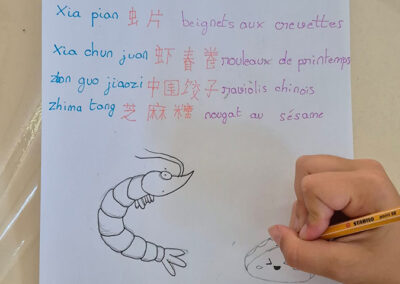 Xia pian 虫片 beignets aux crevettes
Xia chun juan 虾春卷 rouleaux de printemps
zhon guo jiaozi 中国饺子 raviolis chinois
zhima tang 芝麻糖 nougat au sésame
STABILO